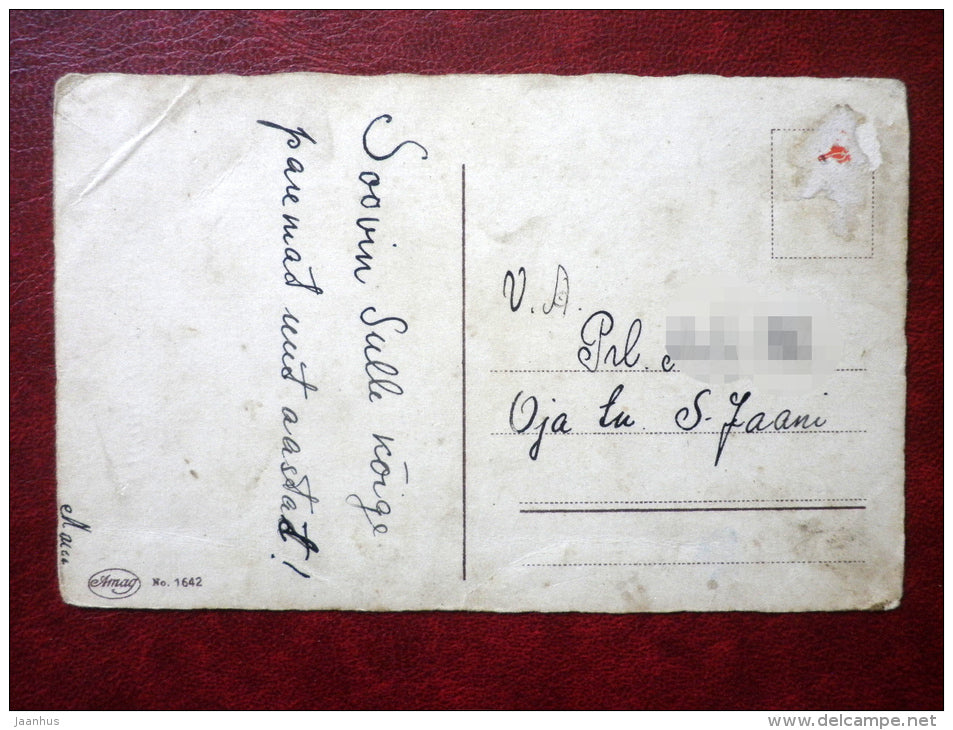 Soovin Sulle kõige
paremat uut aastat!
V. A.
Prl.
Oja tu. S-Jaani
Amag
No. 1642
jaanhus
www.delcampe.net